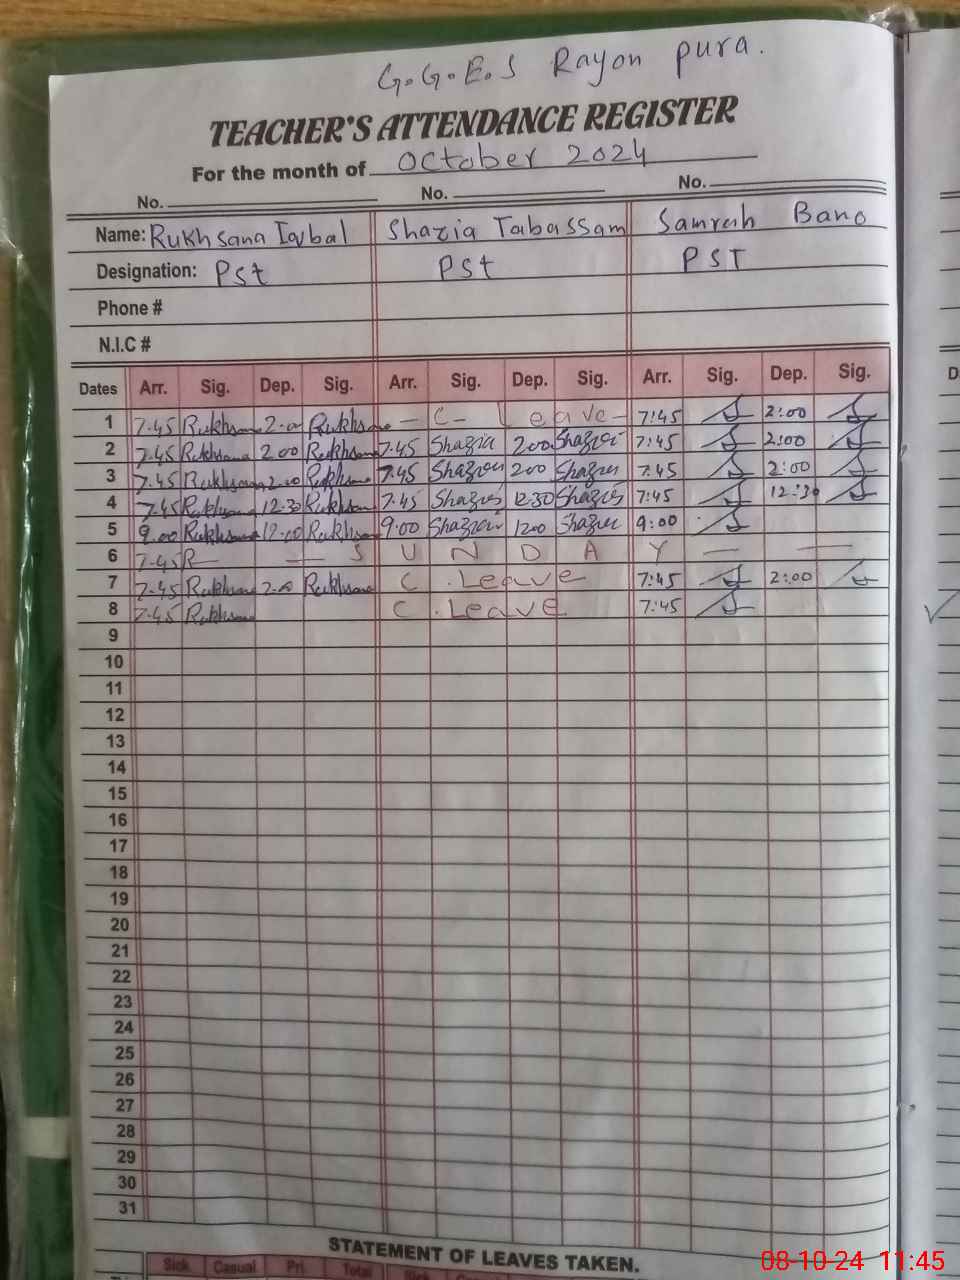 G.G.E.S Rayon pura.
TEACHER'S ATTENDANCE REGISTER
For the month of October 2024
No. No. No.
Name: Rukhsana Iqbal Shazia Tabassam Samrah Bano
Designation: Pst PSt PST
Phone #
N.I.C #
Dates Arr. Sig. Dep. Sig. Arr. Sig. Dep. Sig. Arr. Sig. Dep. Sig.
1 7.45 Rukhsana 2.00 Rukhsana — C — Leave — 7:45 2:00
2 7.45 Rukhsana 200 Rukhsana 7.45 Shazia 200 Shazia 7:45 2:00
3 7.45 Rukhsana 2.00 Rukhsana 7.45 Shazia 200 Shazia 7.45 2:00
4 7.45 Rukhsana 12.30 Rukhsana 7.45 Shazia 12.30 Shazia 7:45 12:30
5 9.00 Rukhsana 12.00 Rukhsana 9.00 Shazia 1200 Shazia 9:00
6 7.45 R — — S U N D A Y — —
7 7.45 Rukhsana 2.00 Rukhsana C . Leave 7:45 2:00
8 7.45 Rukhsana C . Leave 7:45
9
10
11
12
13
14
15
16
17
18
19
20
21
22
23
24
25
26
27
28
29
30
31
STATEMENT OF LEAVES TAKEN.
Sick Casual Pri. Total Sick
D
08-10-24 11:45